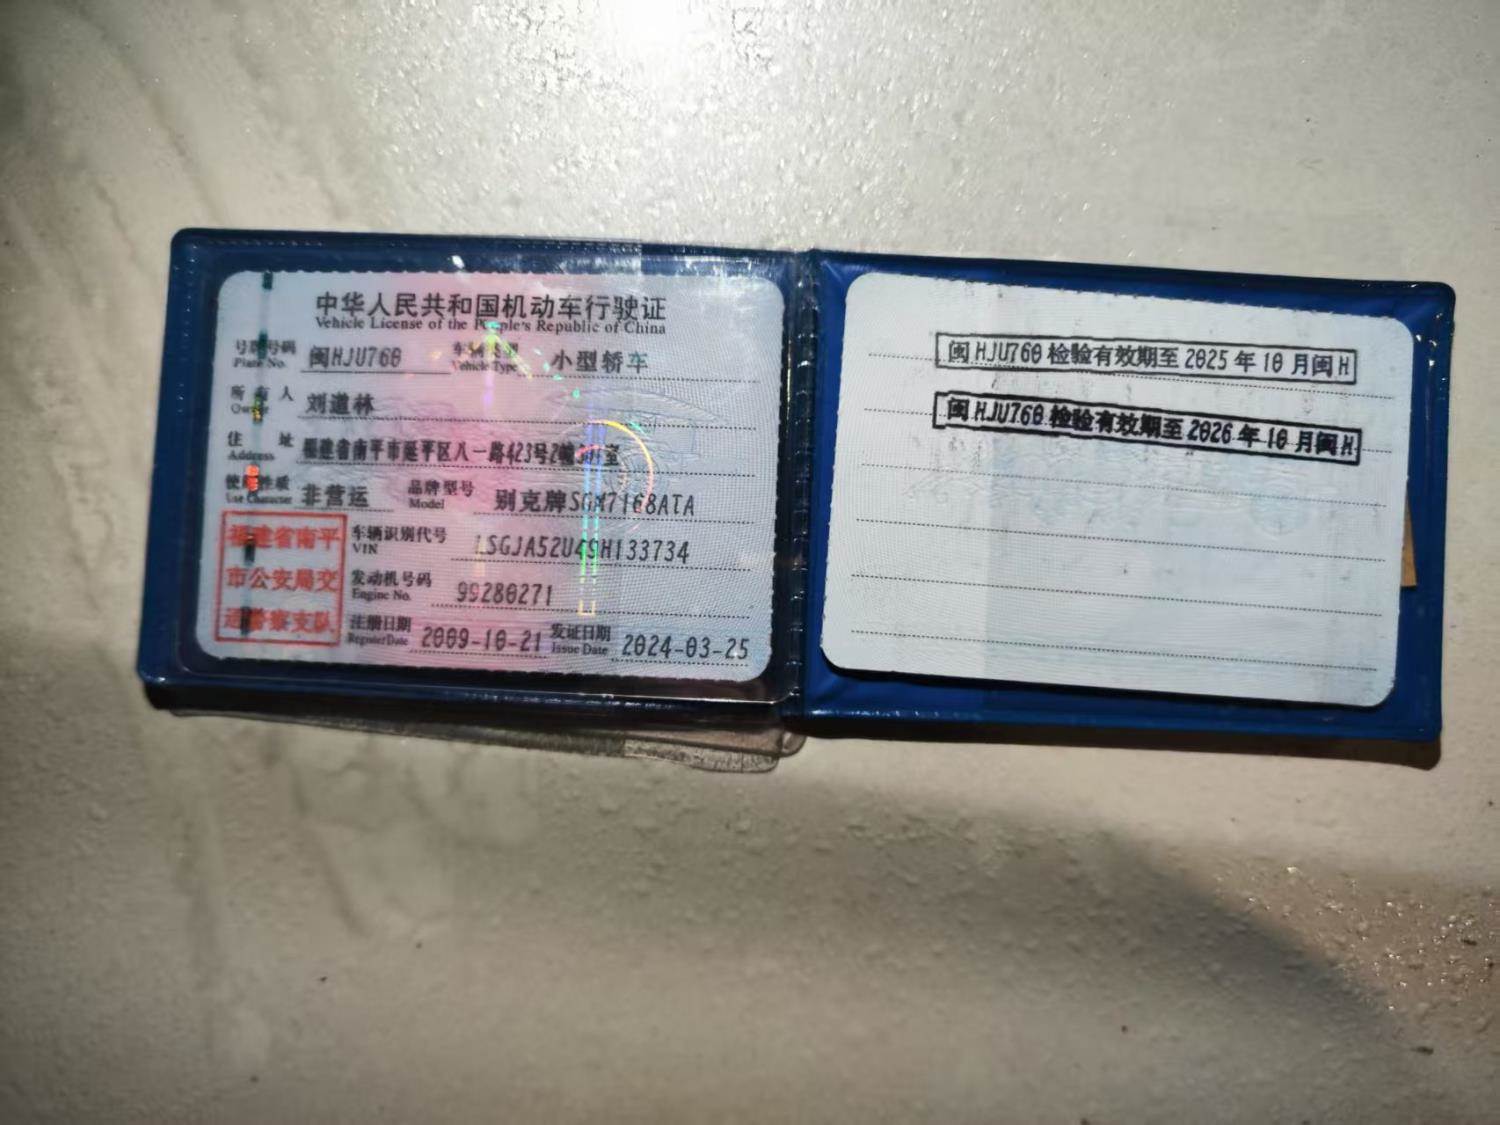 中华人民共和国机动车行驶证
Vehicle License of the People's Republic of China
号牌号码 闽HJU760 车辆类型 小型轿车
Plate No. Vehicle Type
所有人 刘道林
Owner
住址 福建省南平市延平区八一路423号2幢 室
Address
使用性质 非营运 品牌型号 别克牌SGM7168ATA
Use Character Model
福建省南平
市公安局交
通警察支队
车辆识别代号 LSGJA52U49H133734
VIN
发动机号码 99280271
Engine No.
注册日期 2009-10-21 发证日期 2024-03-25
Register Date Issue Date
闽HJU760检验有效期至2025年10月闽H
闽HJU760检验有效期至2026年10月闽H